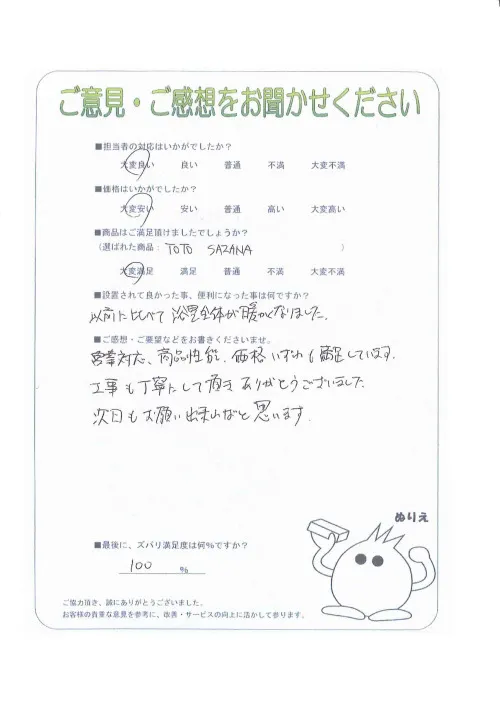 ご意見・ご感想をお聞かせください
■担当者の対応はいかがでしたか？
大変良い 良い 普通 不満 大変不満
■価格はいかがでしたか？
大変安い 安い 普通 高い 大変高い
■商品はご満足頂けましたでしょうか？
(選ばれた商品：TOTO SAZANA )
大変満足 満足 普通 不満 大変不満
■設置されて良かった事、便利になった事は何ですか？
以前に比べて浴室全体が暖かくなりました。
■ご感想・ご要望などをお書きくださいませ。
営業対応、商品性能、価格いずれも満足しています。
工事も丁寧にして頂きありがとうございました。
次回もお願い出来ればと思います。
ぬりえ
■最後に、ズバリ満足度は何％ですか？
100 ％
ご協力頂き、誠にありがとうございました。
お客様の貴重な意見を参考に、改善・サービスの向上に活かして参ります。